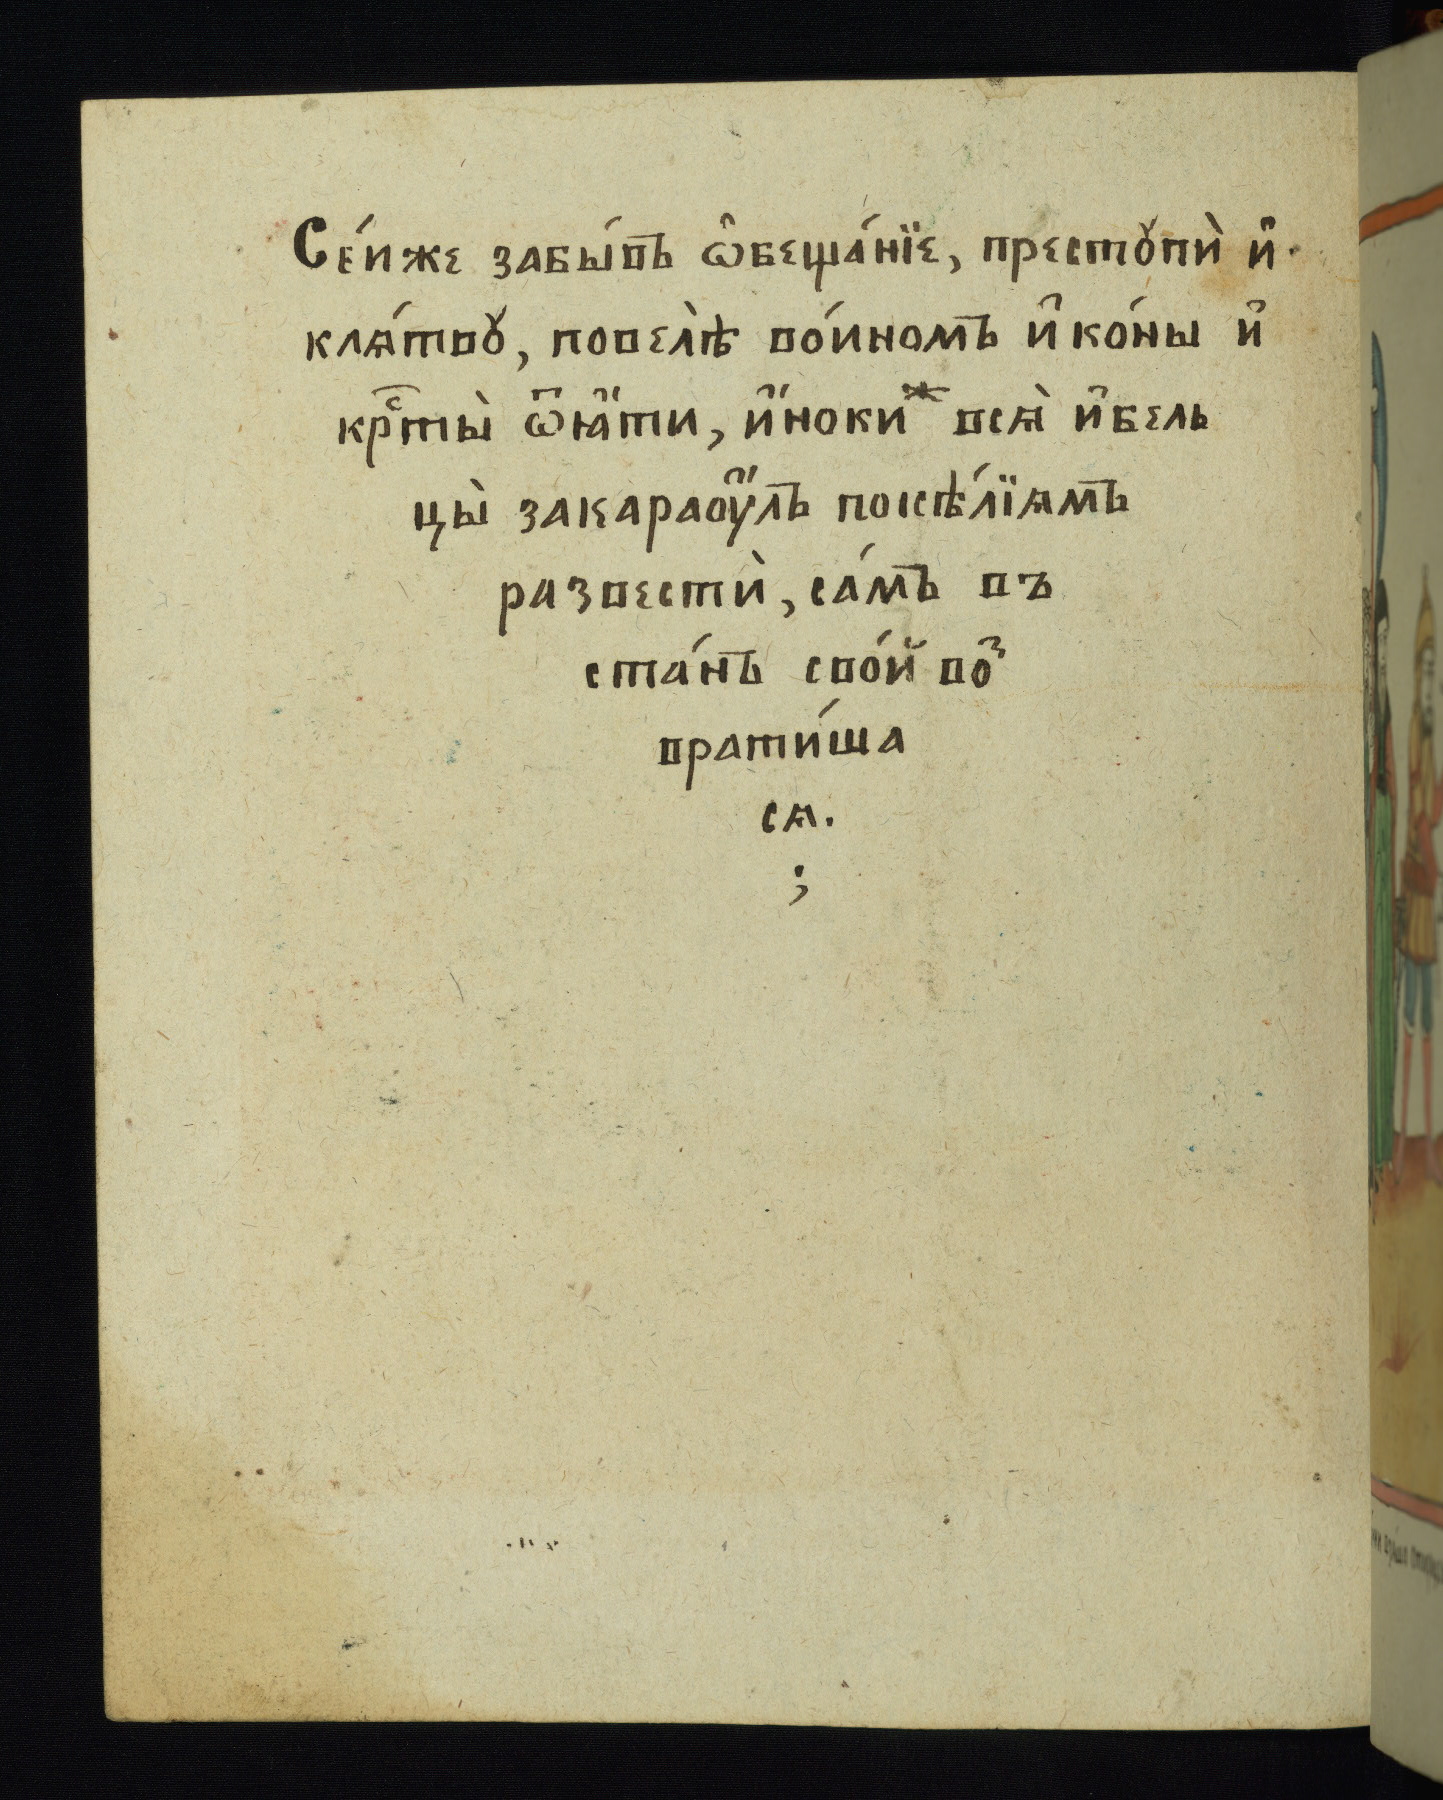 Се́иже забы́въ ѡ҆беща́нїе, престꙋпѝ и҆
клѧ́твꙋ, повелѣ̀ во́иномъ и҆ко́ны и҆
крⷭ҇ты̀ ѿꙗ҆́ти, и҆́нокиⷤ всѧ̀ и҆бель
цы̀ закараоу҆́лъ покѣ́лїѧмъ
развестѝ, са́мъ въ
ста́нъ сво́й воⷥ
врати́ша
сѧ.
;